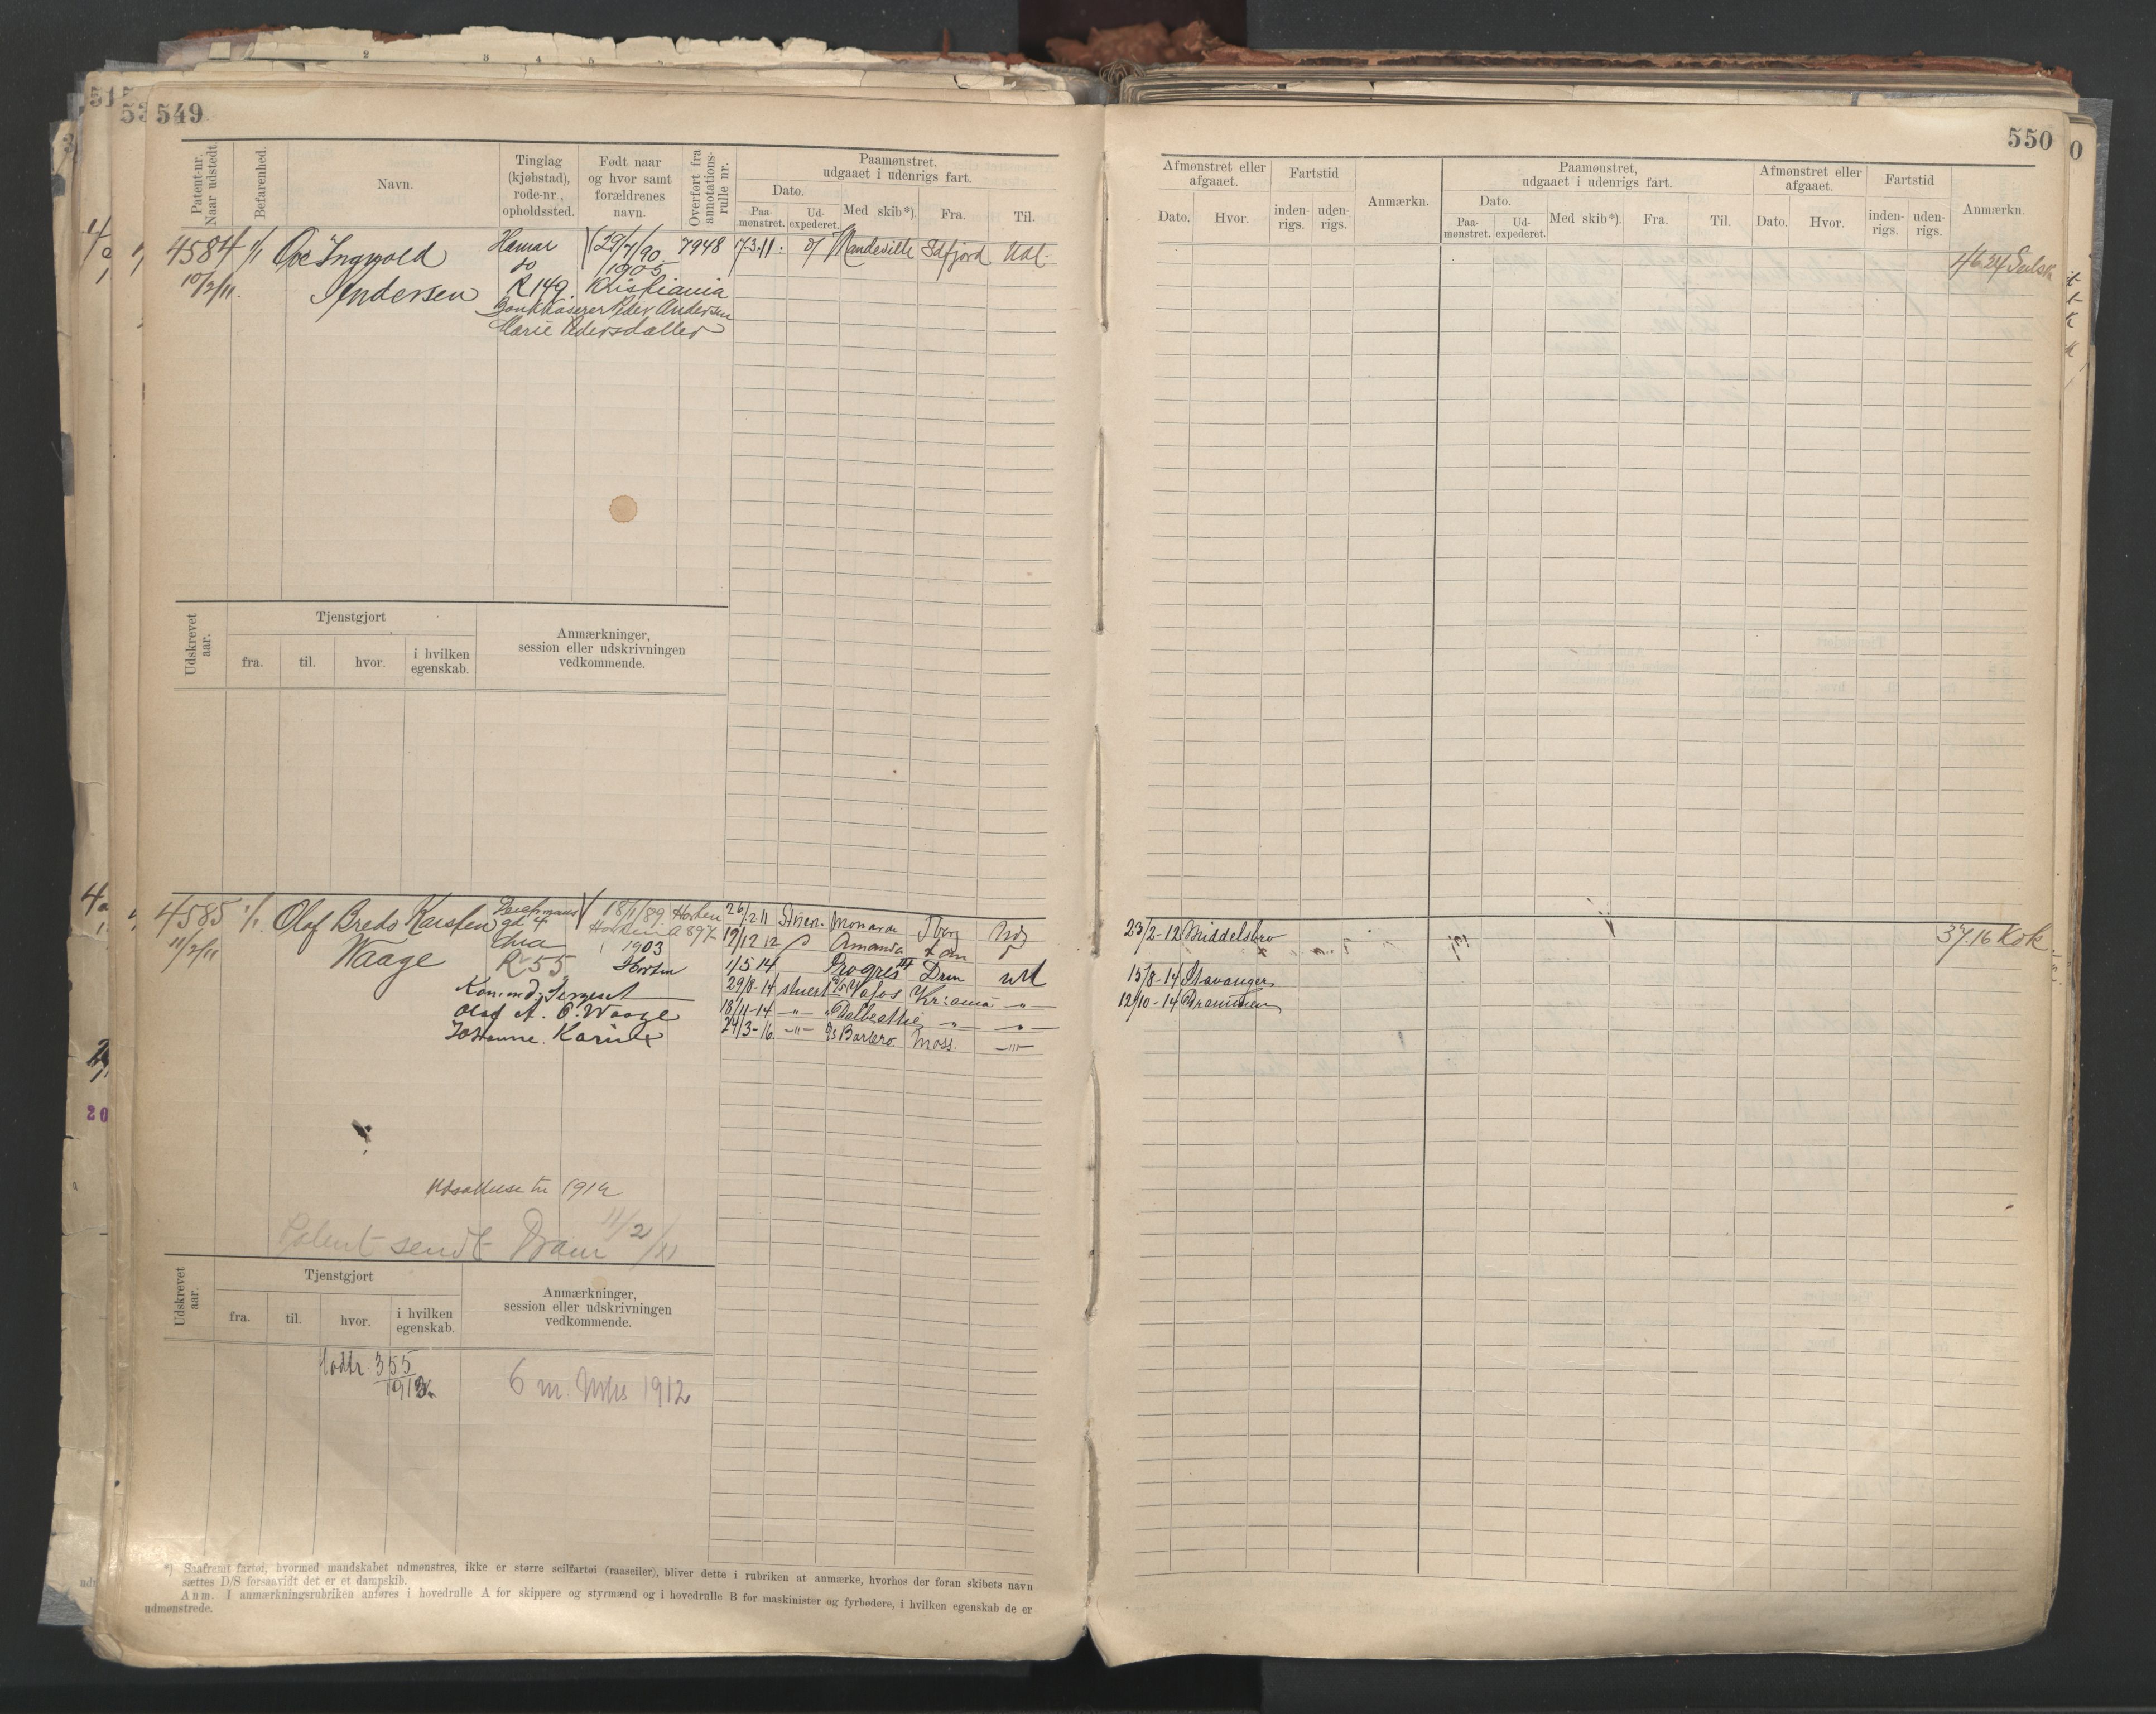 549
Patent-nr. Naar udstedt.
Befarenhed.
Navn.
Tinglag (kjøbstad), rode-nr, opholdssted.
Født naar og hvor samt forældrenes navn.
Overført fra annotations-rulle nr.
Paamønstret, udgaaet i udenrigs fart.
Dato.
Paa-mønstret.
Ud-expederet.
Med skib*).
Fra.
Til.
4584 1/1 Ove Ingvold Hamar 29/7/90 7948 17.3.11. Mandeville Idfjord Udl.
do 1905
10/2/11. Andersen R 149. Kristiania
Bankkasserer Peder Andersen
Marie Pedersdatter
Udskrevet aar.
Tjenstgjort
fra.
til.
hvor.
i hvilken egenskab.
Anmærkninger, session eller udskrivningen vedkommende.
4585 1/1. Olaf Breds Karsten gd 4 18/1/89 Horten 26/2.11 Monarch Tberg
Horten A 897
11/2/11 Waage Chra 1903 19/12 12 Amanda
R 55 Horten 1/5 14 Progres III Dram udl
Kommd: Sergeant 29/8-14 stuert D/S Vafos Kr:ania -"-
Olaf A. O. Waage 18/11-14 -"- Dalbeattie -"- -"-
Johanne Karine 24/3-16. -"- D/S Barbro. Moss. -"-
Udsættelse til 1912
Patent sendt Dram 11/2/11
Udskrevet aar.
Tjenstgjort
fra.
til.
hvor.
i hvilken egenskab.
Anmærkninger, session eller udskrivningen vedkommende.
Hodtr. 355
6 m. 1912
*) Saafremt fartøi, hvormed mandskabet udmønstres, ikke er større seilfartøi (raaseiler), bliver dette i rubriken at anmærke, hvorhos der foran skibets navn
sættes D/S forsaavidt det er et dampskib.
Anm. I anmærkningsrubriken anføres i hovedrulle A for skippere og styrmænd og i hovedrulle B for maskinister og fyrbødere, i hvilken egenskab de er
udmønstrede.
550
Afmønstret eller afgaaet.
Dato.
Hvor.
Fartstid
inden-rigs.
uden-rigs.
Anmærkn.
Paamønstret, udgaaet i udenrigs fart.
Dato.
Paa-mønstret.
Ud-expederet.
Med skib*).
Fra.
Til.
Afmønstret eller afgaaet.
Dato.
Hvor.
Fartstid
inden-rigs.
uden-rigs.
Anmærkn.
4624
23/2-12 Middelsbro 3716 Kok
15/8-14 Stavanger
12/10-14 Drammen